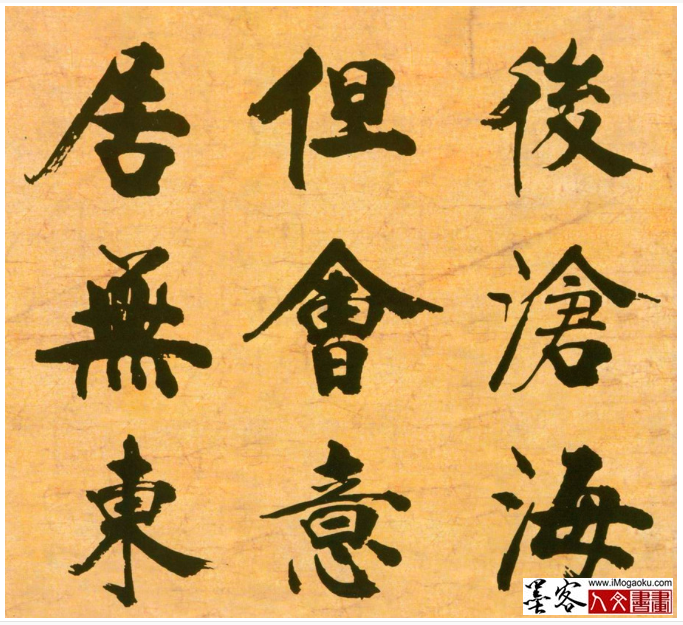 後滄海
但會意
居無東
墨客
www.iMogaoku.com
人文書畫